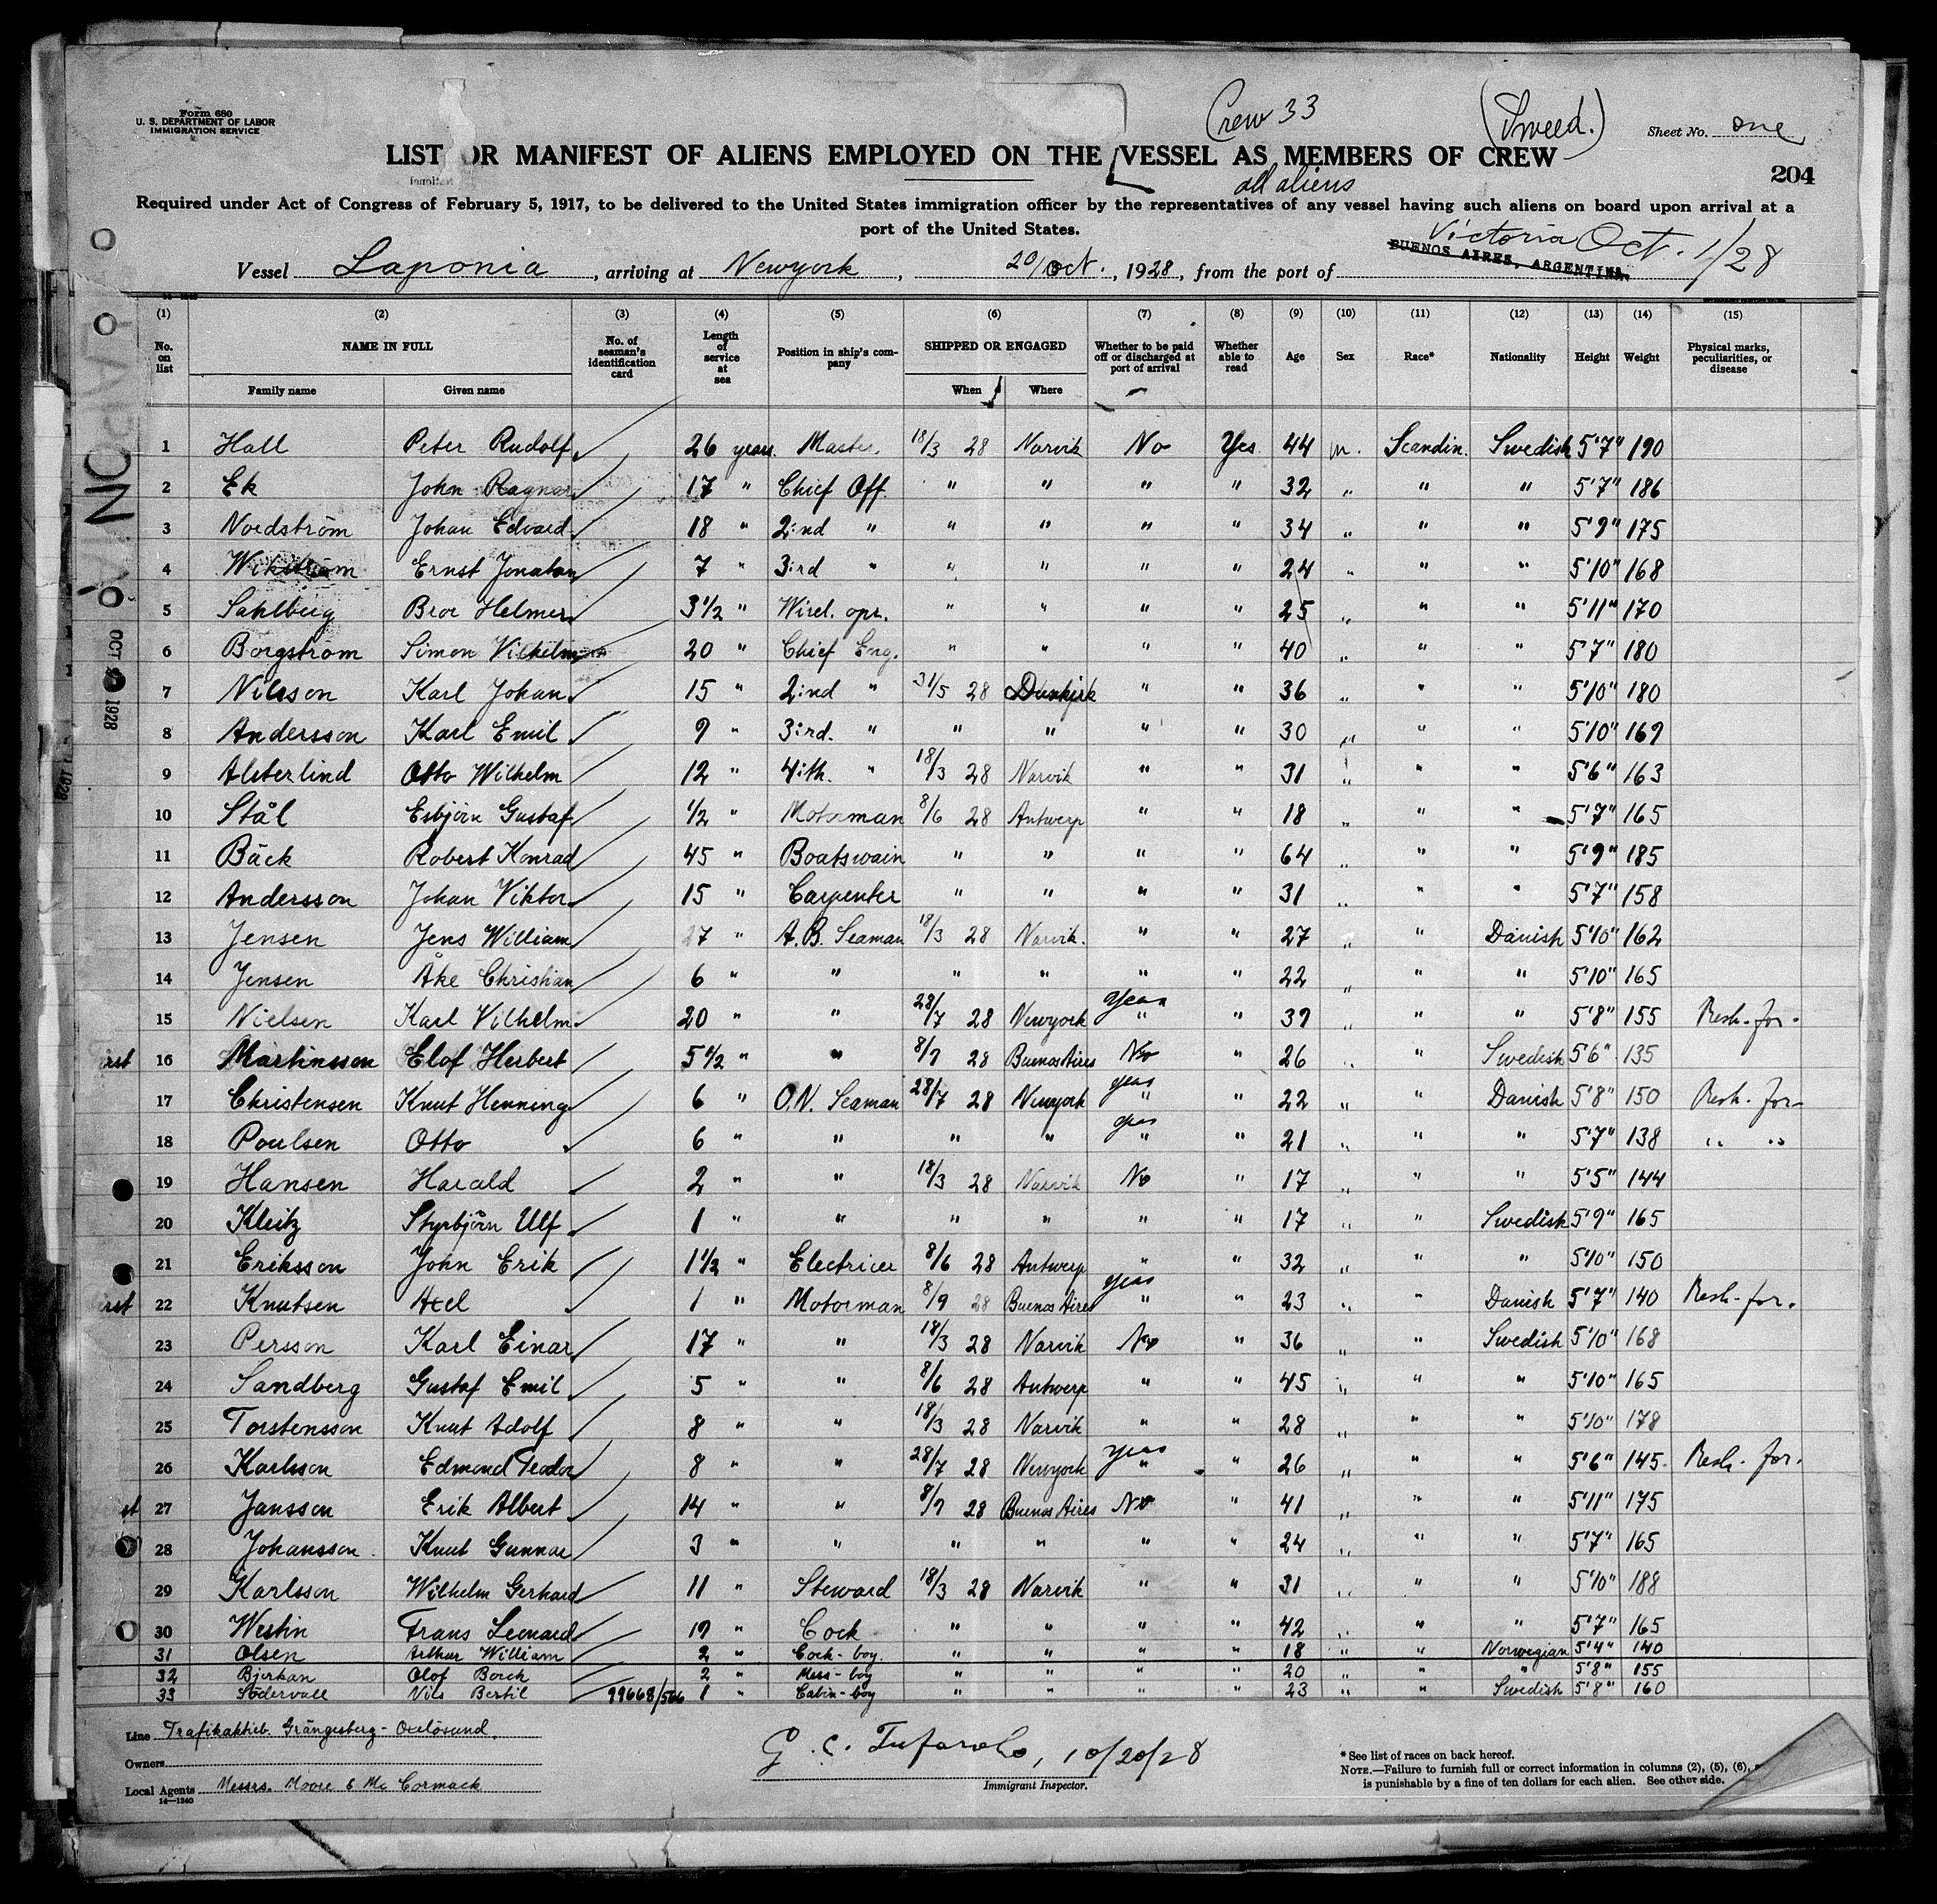 Form 680
U. S. DEPARTMENT OF LABOR
IMMIGRATION SERVICE
Crew 33
(Sweed.)
Sheet No. one
LIST OR MANIFEST OF ALIENS EMPLOYED ON THE VESSEL AS MEMBERS OF CREW
all aliens
204
Required under Act of Congress of February 5, 1917, to be delivered to the United States immigration officer by the representatives of any vessel having such aliens on board upon arrival at a
port of the United States.
Victoria Oct. 1/28
Vessel Laponia, arriving at Newyork, 20/Oct., 1928, from the port of BUENOS AIRES, ARGENTINA.
(1) (2) (3) (4) (5) (6) (7) (8) (9) (10) (11) (12) (13) (14) (15)
No. on list NAME IN FULL No. of seaman's identification card Length of service at sea Position in ship's company SHIPPED OR ENGAGED Whether to be paid off or discharged at port of arrival Whether able to read Age Sex Race* Nationality Height Weight Physical marks, peculiarities, or disease
Family name Given name When Where
1 Hall Peter Rudolf 26 years Master. 18/3 28 Narvik No Yes 44 m. Scandin. Swedish 5'7" 190
2 Ek John Ragnar 17 " Chief Off. " " " " 32 " " " 5'7" 186
3 Nordström Johan Edvard 18 " 2:nd " " " " " 34 " " " 5'9" 175
4 Wikström Ernst Jonatan 7 " 3:rd " " " " " 24 " " " 5'10" 168
5 Sahlberg Bror Helmer 3 1/2 " Wirel. opr. " " " " 25 " " " 5'11" 170
6 Borgström Simon Vilhelm 20 " Chief Eng. " " " " 40 " " " 5'7" 180
7 Nilsson Karl Johan 15 " 2:nd " 31/5 28 Dunkirk " " 36 " " " 5'10" 180
8 Andersson Karl Emil 9 " 3:rd. " " " " " 30 " " " 5'10" 169
9 Alsterlind Otto Wilhelm 12 " 4:th. " 18/3 28 Narvik " " 31 " " " 5'6" 163
10 Stål Esbjörn Gustaf 1/2 " Motorman 8/6 28 Antwerp " " 18 " " " 5'7" 165
11 Bäck Robert Konrad 45 " Boatswain " " " " 64 " " " 5'9" 185
12 Andersson Johan Viktor 15 " Carpenter " " " " 31 " " " 5'7" 158
13 Jensen Jens William 27 " A.B. Seaman 18/3 28 Narvik. " " 27 " " Danish 5'10" 162
14 Jensen Åke Christian 6 " " " " " " 22 " " " 5'10" 165
15 Nielsen Karl Vilhelm 20 " " 28/7 28 Newyork yeas " " 39 " " " 5'8" 155 Resh. for.
16 Martinsson Elof Herbert 5 1/2 " " 8/9 28 Buenos Aires No " 26 " " Swedish 5'6" 135
17 Christensen Knut Henning 6 " O.N. Seaman 28/7 28 Newyork yeas " " 22 " " Danish 5'8" 150 Resh. for
18 Poulsen Otto 6 " " " " yeas " " 21 " " " 5'7" 138 " "
19 Hansen Harald 2 " " 18/3 28 Narvik No " 17 " " " 5'5" 144
20 Kleitz Styrbjörn Ulf 1 " " " " " " 17 " " Swedish 5'9" 165
21 Eriksson John Erik 1 1/2 " Electricer 8/6 28 Antwerp " " 32 " " " 5'10" 150
22 Knutsen Axel 1 " Motorman 8/9 28 Buenos Aires yeas " " 23 " " Danish 5'7" 140 Resh. for.
23 Persson Karl Einar 17 " " 18/3 28 Narvik No " 36 " " Swedish 5'10" 168
24 Sandberg Gustaf Emil 5 " " 8/6 28 Antwerp " " 45 " " " 5'10" 165
25 Torstensson Knut Adolf 8 " " 18/3 28 Narvik " " 28 " " " 5'10" 178
26 Karlsson Edmond Teodor 8 " " 28/7 28 Newyork yeas " " 26 " " " 5'6" 145 Resh. for.
27 Jansson Erik Albert 14 " " 8/9 28 Buenos Aires No " 41 " " " 5'11" 175
28 Johansson Knut Gunnar 3 " " " " " " 24 " " " 5'7" 165
29 Karlsson Wilhelm Gerhard 11 " Steward 18/3 28 Narvik " " 31 " " " 5'10" 188
30 Westin Frans Leonard 19 " Cock " " " " 42 " " " 5'7" 165
31 Olsen Arthur William 2 " Cock-boy. " " " " 18 " " Norwegian 5'4" 140
32 Bjerkan Olof Borch 2 " Mess-boy " " " " 20 " " " 5'8" 155
33 Södervall Nils Bertil 99668/566 1 " Cabin-boy " " " " 23 " " Swedish 5'8" 160
LAPONIA
OCT 20 1928
Line Trafikaktieb. Grängesberg-Oxelösund.
Owners
Local Agents Messrs. Moore & Mc Cormack
14—1240
G. C. Tufarolo, 10/20/28
Immigrant Inspector.
* See list of races on back hereof.
NOTE.—Failure to furnish full or correct information in columns (2), (5), (6),
is punishable by a fine of ten dollars for each alien. See other side.